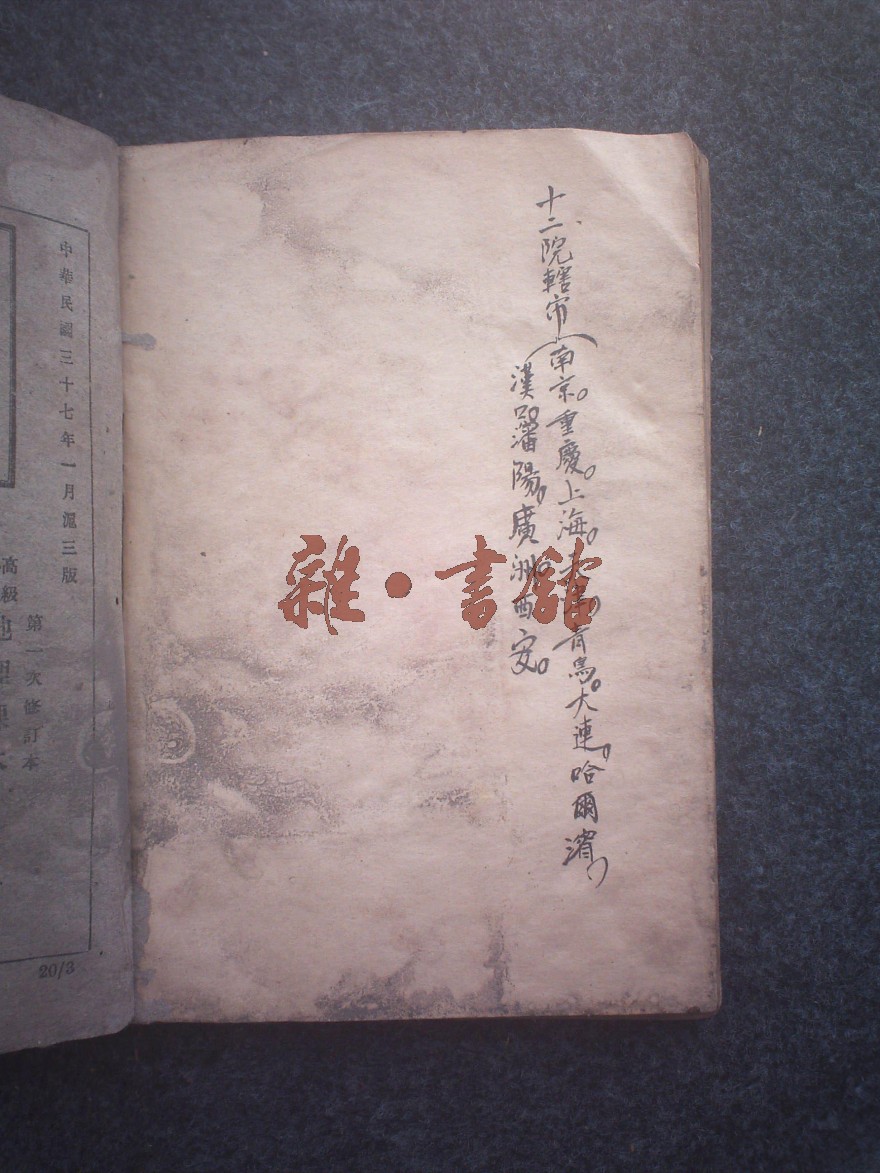 十二院轄市(南京。重慶。上海。天津。青島。大連。哈爾濱,
漢口。瀋陽。廣洲。西安。
中華民國三十七年一月滬三版
第一次修訂本
高級地理課本
20/3
雜·書館